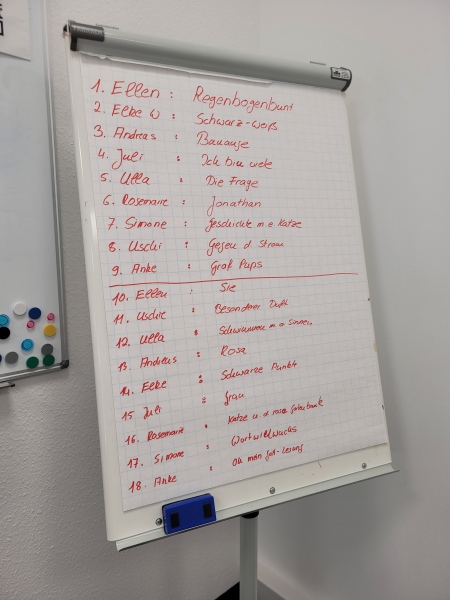 1. Ellen : Regenbogenbunt
2. Elke W : Schwarz-Weiß
3. Andreas : Banause
4. Juli : Ich bin viele
5. Ulla : Die Frage
6. Rosemarie : Jonathan
7. Simone : Geschichte m. e. Katze
8. Uschi : Gegen d. Strom
9. Anke : Graf Pups
10. Ellen : Sie
11. Uschi : Besonderer Duft
12. Ulla : Schwimmen m. a. Sinnen
13. Andreas : Rosa
14. Elke : Schwarze Punkte
15 Juli : grau
16. Rosemarie : Katze u. d. rosa
17. Simone : Wortwildwuchs
18. Anke : Oh mein Gott-Lesung